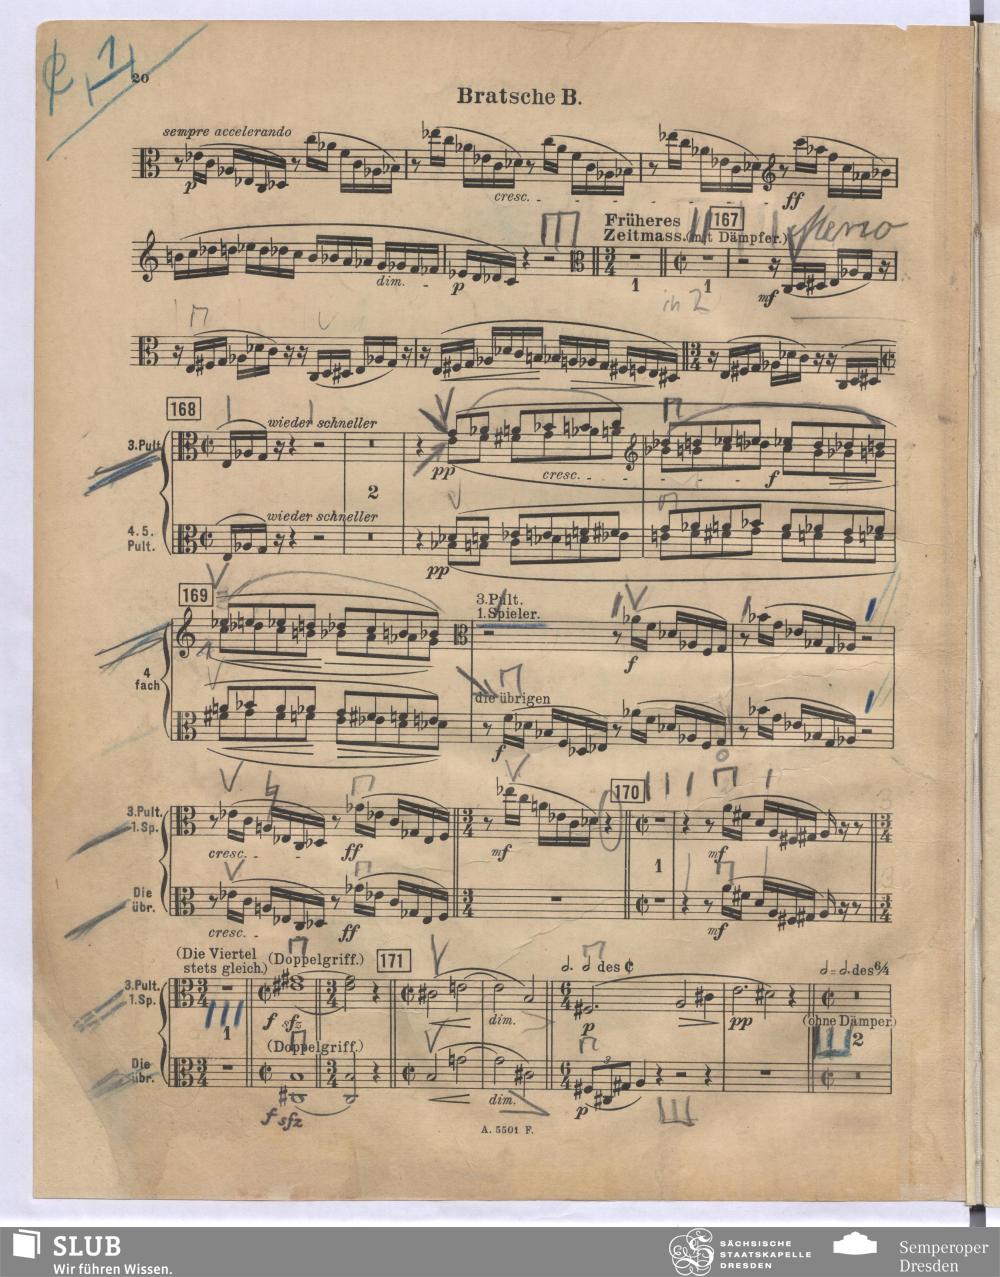 20
Bratsche B.
sempre accelerando
p
cresc.
ff
Früheres
Zeitmass. (mit Dämpfer.)
167
dim.
p
1
1
mf
in 2
168
wieder schneller
3. Pult.
2
pp
cresc.
f
wieder schneller
4. 5.
Pult.
pp
169
3. Pult.
1. Spieler.
4
fach
f
die übrigen
f
170
3. Pult.
1. Sp.
cresc.
ff
mf
1
mf
Die
übr.
cresc.
ff
mf
(Die Viertel
stets gleich.)
(Doppelgriff.)
171
des ¢
des 6/4
3. Pult.
1. Sp.
1
f sfz
dim.
p
pp
(ohne Dämpfer.)
(Doppelgriff.)
2
Die
übr.
f sfz
dim.
3
p
A. 5501 F.
SLUB
Wir führen Wissen.
SÄCHSISCHE
STAATSKAPELLE
DRESDEN
Semperoper
Dresden